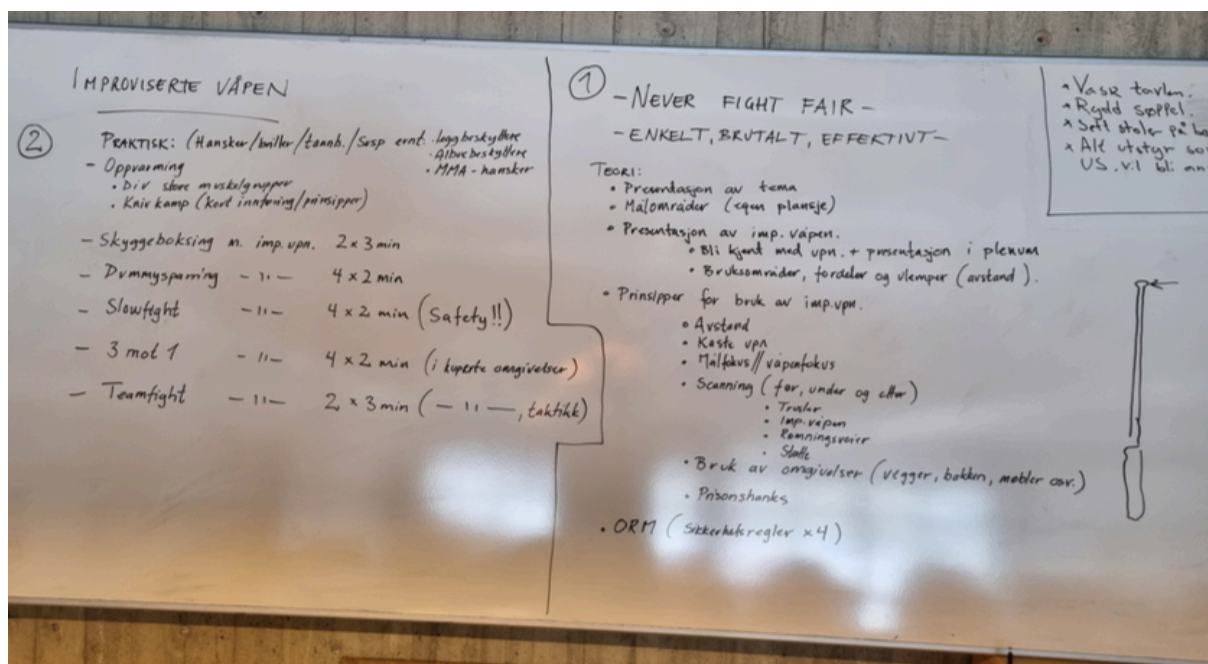 IMPROVISERTE VÅPEN
②
PRAKTISK: (Hansker/briller/tannb./Susp ernt. · Leggbeskyttere
· Albuebeskyttere
· MMA-hansker
- Oppvarming
· Div store muskelgrupper
· Kniv kamp (kort innføring/prinsipper)
- Skyggeboksing m. imp. vpn. 2 x 3 min
- Dummysparring -"- 4 x 2 min
- Slowfight -"- 4 x 2 min (Safety!!)
- 3 mot 1 -"- 4 x 2 min (i kuperte omgivelser)
- Teamfight -"- 2 x 3 min (-"-, taktikk)
①
- NEVER FIGHT FAIR -
- ENKELT, BRUTALT, EFFEKTIVT -
TEORI:
· Presentasjon av tema
· Målområder (egen plansje)
· Presentasjon av imp. våpen.
· Bli kjent med vpn. + presentasjon i plenum
· Bruksområder, fordeler og ulemper (avstand).
· Prinsipper for bruk av imp. vpn.
· Avstand
· Kaste vpn
· Målfokus // våpenfokus
· Scanning (før, under og etter)
· Trusler
· Imp. våpen
· Rømningsveier
· Støtte
· Bruk av omgivelser (vegger, bakken, møbler osv.)
· Prisonshanks
· ORM (Sikkerhetsregler x4)
* Vask tavlen.
* Rydd søppel.
* Sett stoler på
* Alt utstyr
US. vil bli